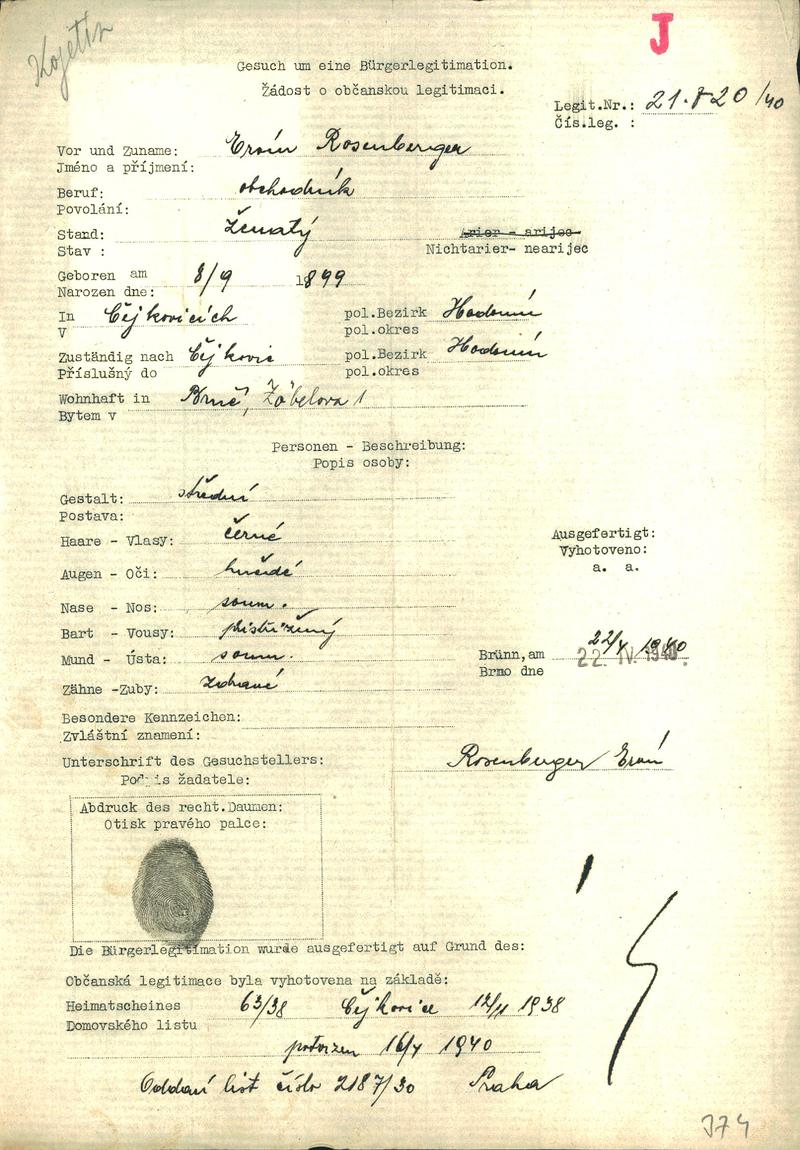 Kojetín
J
Gesuch um eine Bürgerlegitimation.
Žádost o občanskou legitimaci.
Legit.Nr.: 21.820/40
Čís.leg. :
Vor und Zuname: Ervín Rosenberger
Jméno a příjmení:
Beruf: obchodník
Povolání:
Stand: ženatý Arier - arijec
Stav : Nichtarier- nearijec
Geboren am 8/9 1899
Narozen dne:
In Čejkovicích pol.Bezirk Hodonín
V pol.okres
Zuständig nach Čejkovic pol.Bezirk Hodonín
Příslušný do pol.okres
Wohnhaft in Brně, Žöbelova 1
Bytem v
Personen - Beschreibung:
Popis osoby:
Gestalt: střední
Postava:
Haare - Vlasy: černé
Ausgefertigt:
Vyhotoveno:
a. a.
Augen - Oči: hnědé
Nase - Nos: soum.
Bart - Vousy: přistřižený
Mund - Ústa: soum.
Brünn,am 22/4 1940
Brno dne 22. IV. 1940.
Zähne -Zuby: zdravé
Besondere Kennzeichen:
Zvláštní znamení:
Unterschrift des Gesuchstellers: Rosenberger Ervín
Podpis žadatele:
Abdruck des recht.Daumen:
Otisk pravého palce:
Die Bürgerlegitimation wurde ausgefertigt auf Grund des:
Občanská legitimace byla vyhotovena na základě:
Heimatscheines 63/38 Čejkovice 12/11 1938
Domovského listu
potvrzen 16/4 1940
Oddací list číslo 2187/30 Praha
374